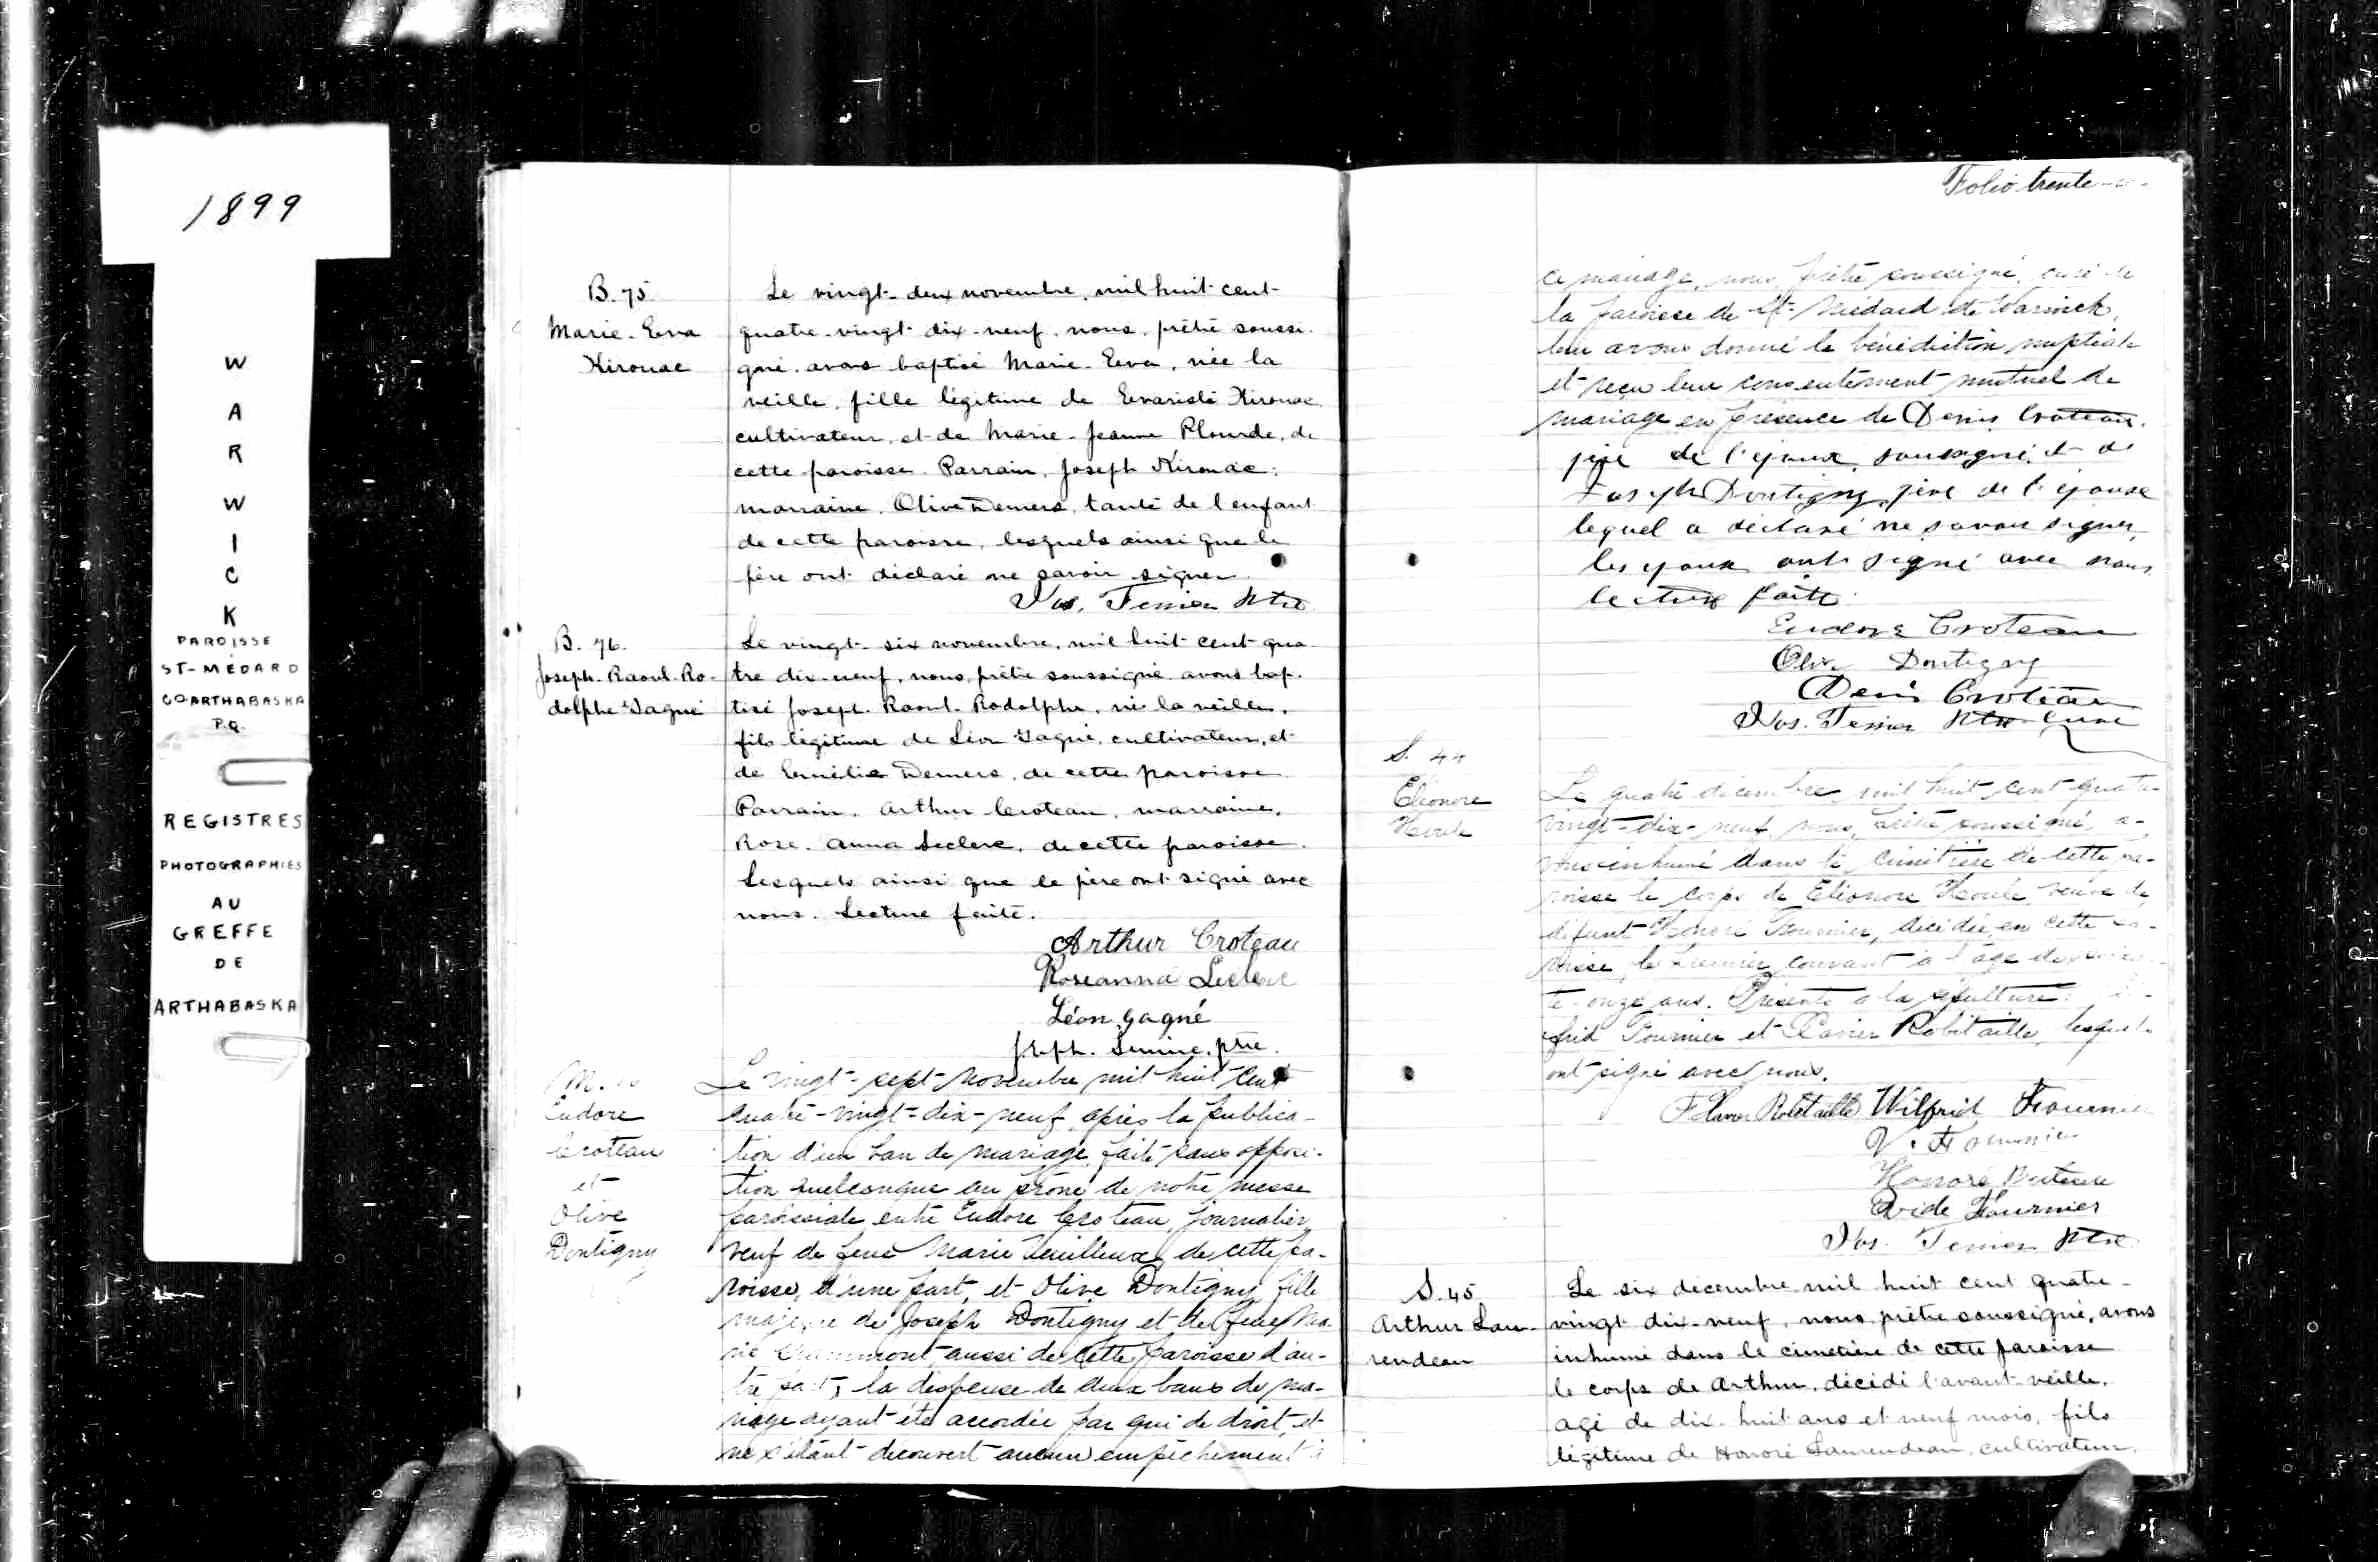 1899
W
A
R
W
I
C
K
PAROISSE
ST-MÉDARD
CO ARTHABASKA
P.Q.
REGISTRES
PHOTOGRAPHIES
AU
GREFFE
DE
ARTHABASKA
B. 75
Marie-Eva
Kirouac
Le vingt-deux novembre, mil huit cent
quatre-vingt-dix-neuf, nous, prêtre soussi-
gné, avons baptisé Marie-Eva, née la
veille, fille légitime de Evariste Kirouac
cultivateur, et de Marie-Jeanne Plourde, de
cette paroisse. Parrain, Joseph Kirouac;
marraine, Olive Demers, tante de l'enfant
de cette paroisse, lesquels ainsi que le
père ont déclaré ne savoir signer.
Nos. Tessier Ptre
B. 76.
Joseph-Raoul-Ro-
dolphe Gagné
Le vingt-six novembre, mil huit cent qua
tre dix-neuf, nous, prêtre soussigné avons bap-
tisé Joseph-Raoul-Rodolphe, né la veille,
fils légitime de Léon Gagné, cultivateur, et
de Emélie Demers, de cette paroisse.
Parrain, Arthur Croteau, marraine,
Rose-Anna Leclerc, de cette paroisse.
Lesquels ainsi que le père ont signé avec
nous. Lecture faite.
Arthur Croteau
Roseanna Leclerc
Léon Gagné
ptre.
M.
Eudore
Croteau
et
Olive
Dontigny
Le vingt-sept novembre mil huit cent
quatre-vingt-dix-neuf, après la publica-
tion d'un ban de mariage, faite sans opposi-
tion quelconque au prône de notre messe
paroissiale entre Eudore Croteau, journalier,
veuf de feue Marie Leuilleux, de cette pa-
roisse, d'une part, et Olive Dontigny, fille
majeure de Joseph Dontigny et de feue Ma-
rie aussi de cette paroisse d'au-
tre part, la dispense de deux bans de ma-
riage ayant été accordée par qui de droit, et
ne s'étant découvert aucun empêchement à
Folio trente
ce mariage, nous, prêtre soussigné, curé de
la paroisse de St-Médard de Warwick,
leur avons donné la bénédiction nuptiale
et reçu leur consentement mutuel de
mariage en présence de Denis Croteau,
père de l'époux, soussigné, et de
Joseph Dontigny, père de l'épouse
lequel a déclaré ne savoir signer,
les époux ont signé avec nous
lecture faite
Eudore Croteau
Oliv Dontigny
Denis Croteau
Nos. Tessier Ptre Curé
S. 44
Eléonore
Houle
Le quatre décembre, mil huit cent quatre-
vingt-dix-neuf, nous, prêtre soussigné, a-
vons inhumé dans le cimetière de cette pa-
roisse le corps de Eléonore Houle, veuve de
défunt Honoré Fournier, décédée en cette pa-
roisse, le premier courant à l'âge de soixan-
te-onze ans. Présents à la sépulture:
frid Fournier et Xavier Robitaille, lesquels
ont signé avec nous.
F Xavier Robitaille Wilfrid Fournier
V. Fournier
Honoré
Ovide Fournier
Nos. Tessier Ptre
S. 45
Arthur Lau-
rendeau
Le six décembre mil huit cent quatre-
vingt-dix-neuf, nous prêtre soussigné, avons
inhumé dans le cimetière de cette paroisse
le corps de Arthur, décédé l'avant-veille,
agé de dix-huit ans et neuf mois, fils
légitime de Honoré Laurendeau, cultivateur,